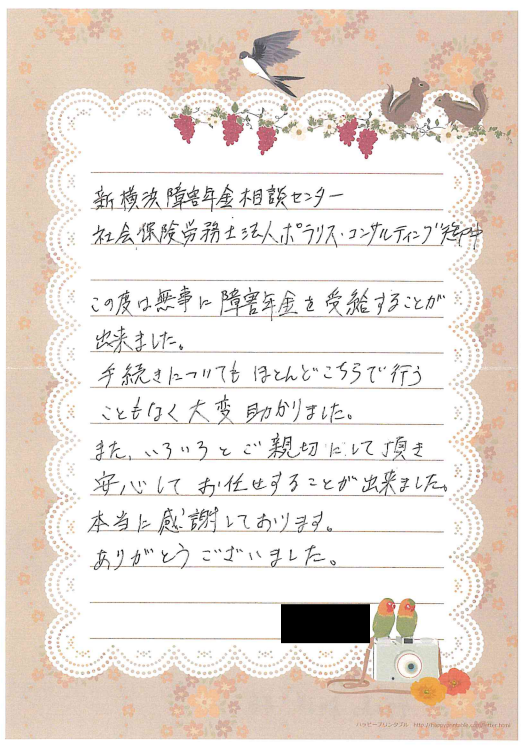 新横浜障害年金相談センター
社会保険労務士法人ポラリス・コンサルティング 御中
この度は無事に障害年金を受給することが
出来ました。
手続きについてもほとんどこちらで行う
こともなく大変助かりました。
また、いろいろとご親切にして頂き
安心してお任せすることが出来ました。
本当に感謝しております。
ありがとうございました。
ハッピープリンタブル